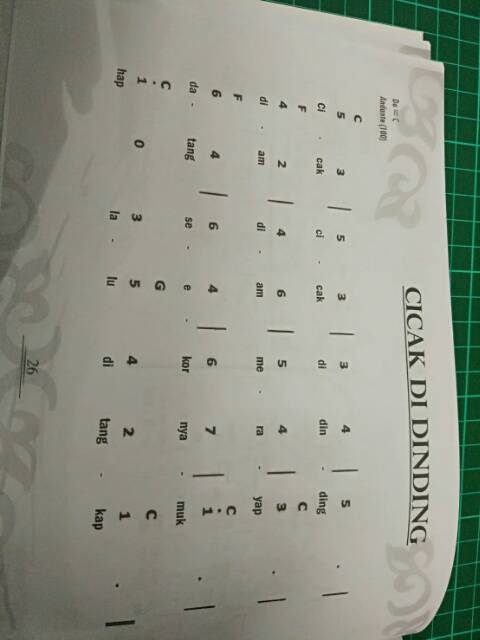 CICAK DI DINDING
Do = C
Andante (100)
C
5 3 | 5 3 | 3 4 | 5 . |
Ci . cak ci . cak di din - ding
F C
4 2 | 4 6 | 5 4 | 3 . |
di . am di - am me - ra - yap
F C
6 4 | 6 4 | 6 7 | 1̇ . |
da - tang se - e - kor nya - muk
C G C
1̇ 0 3 5 4 2 1 . |
hap la - lu di tang - kap
26